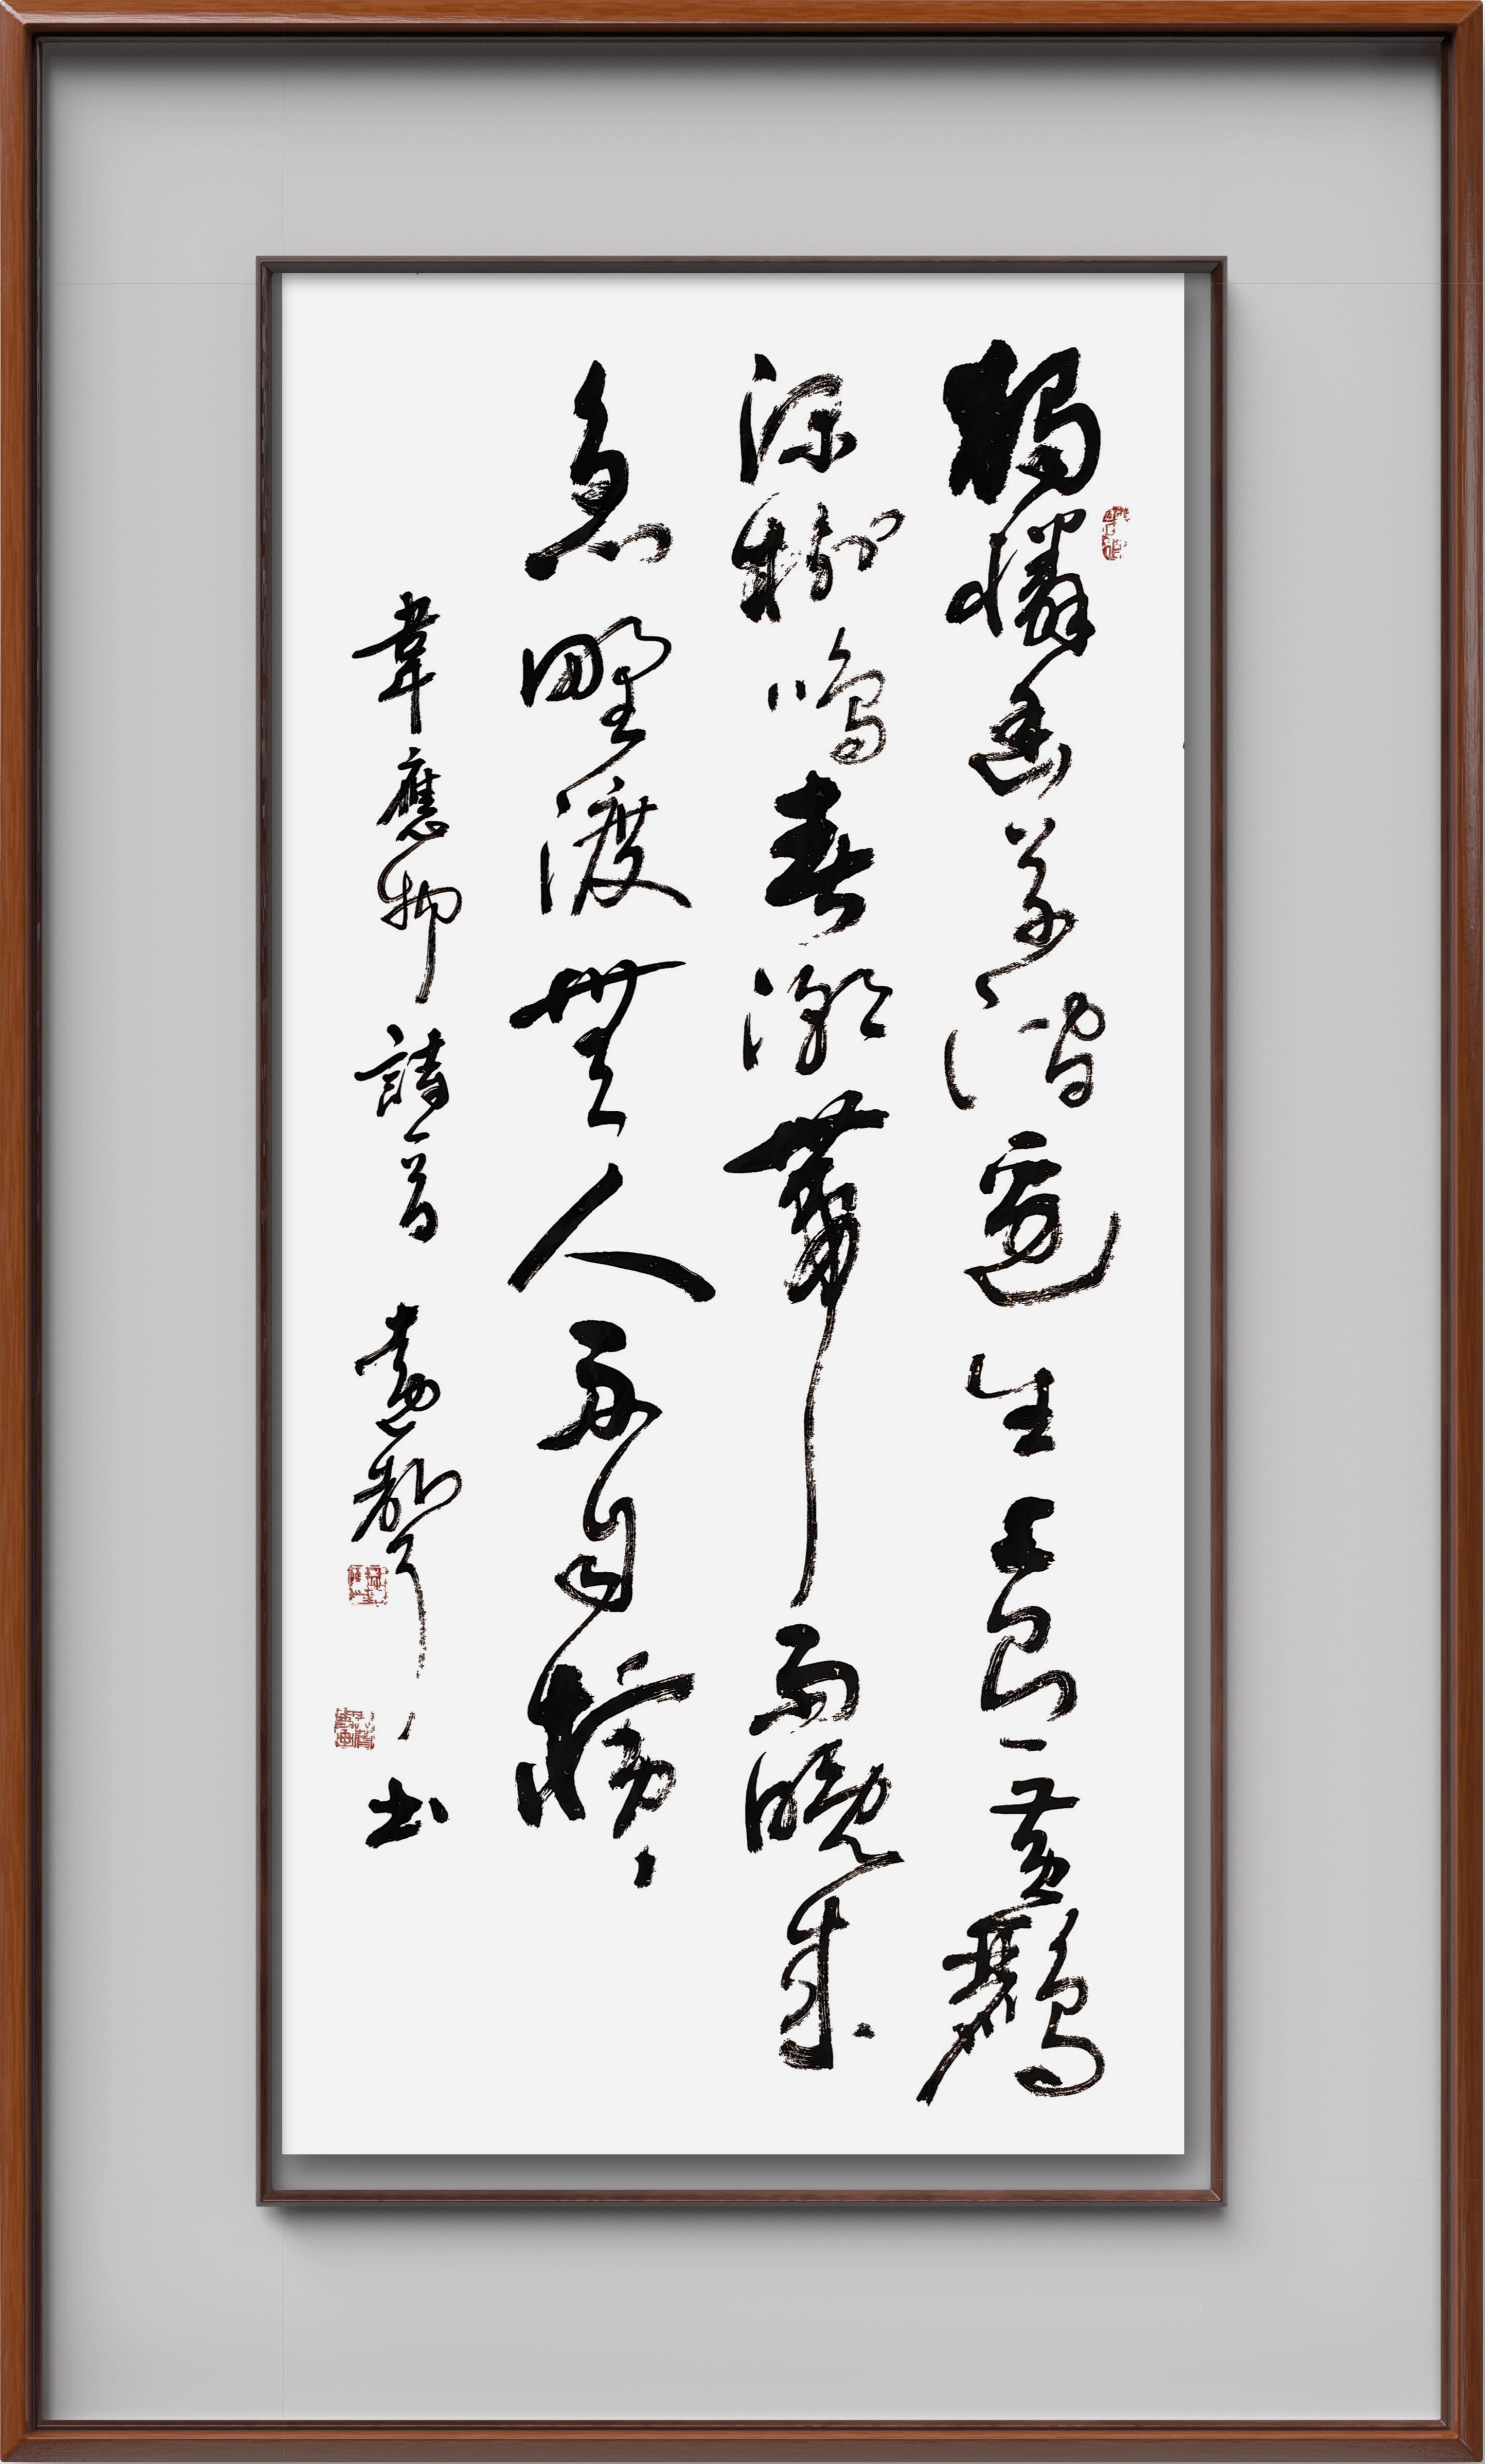 獨憐幽草澗邊生上有黃鸝
深樹鳴春潮帶雨晚來
急野渡無人舟自橫
韋應物詩一首 书